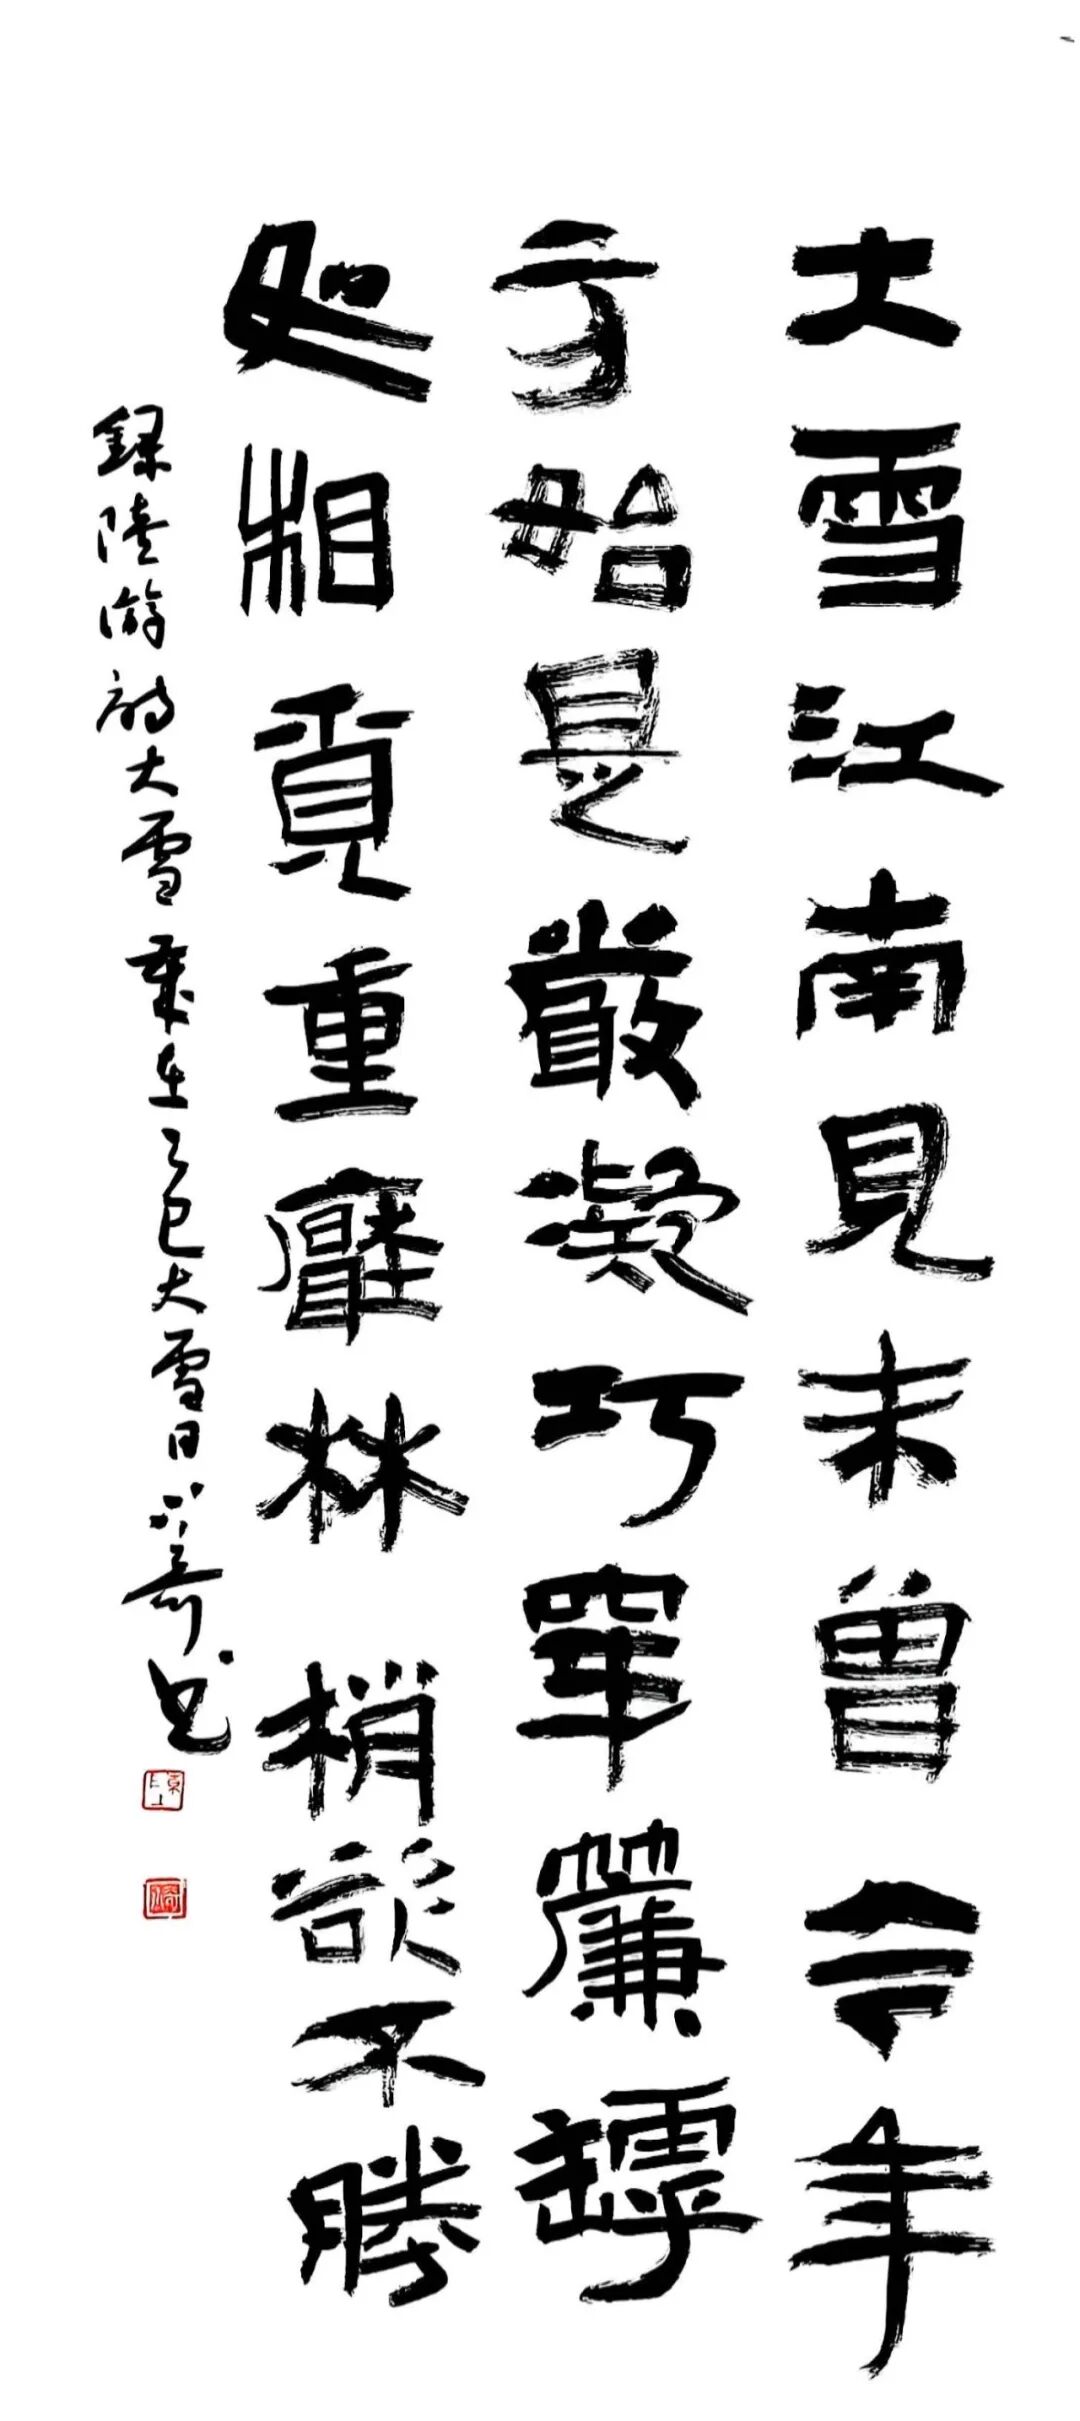 大雪江南見未曾今年
方始是嚴凝巧穿簾罅
如相覓重壓林梢欲不勝
錄陸游詩大雪歲在乙巳大雪日